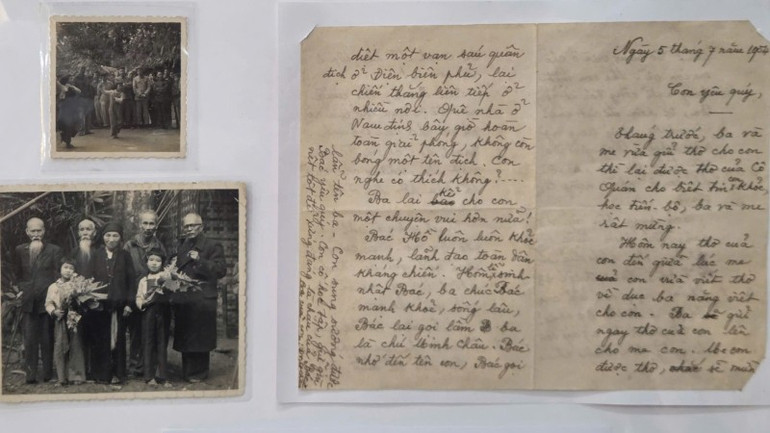 Ngày 5 tháng 7 năm 1954
Con yêu quý,
Tháng trước, ba và
mẹ vừa gửi thơ cho con
thì lại được thơ của Cô
Quán cho biết tin con khỏe,
học tấn-bộ, ba và mẹ
rất mừng.
Hôm nay thơ của
con đến giữa lúc mẹ
con vừa viết thơ
về dục ba năng viết
cho con. Ba sẽ gửi
ngay thơ của con lên
cho mẹ con. Mẹ con
được thơ, chắc sẽ mừng
diệt một vạn sáu quân
địch ở Điện biên phủ, lại
chiến thắng liên tiếp ở
nhiều nơi. Quê nhà ở
Nam định bây giờ hoàn
toàn giải phóng, không còn
bóng một tên địch. Con
nghe có thích không?....
Ba lại kể cho con
một chuyện vui hơn nữa!
Bác Hồ luôn luôn khỏe
mạnh, lãnh đạo toàn dân
kháng chiến. Hôm sinh
nhật Bác, ba chúc Bác
mạnh khỏe, sống lâu,
Bác lại gọi lầm ba
là chú Minh Châu. Bác
nhớ đến tên con, Bác gọi
lầm tên ba. Con sung sướng được
Bác yêu quý. Con cố học tập, giữ gìn
nết tốt để xứng đáng là cháu của Bác
Ba của con